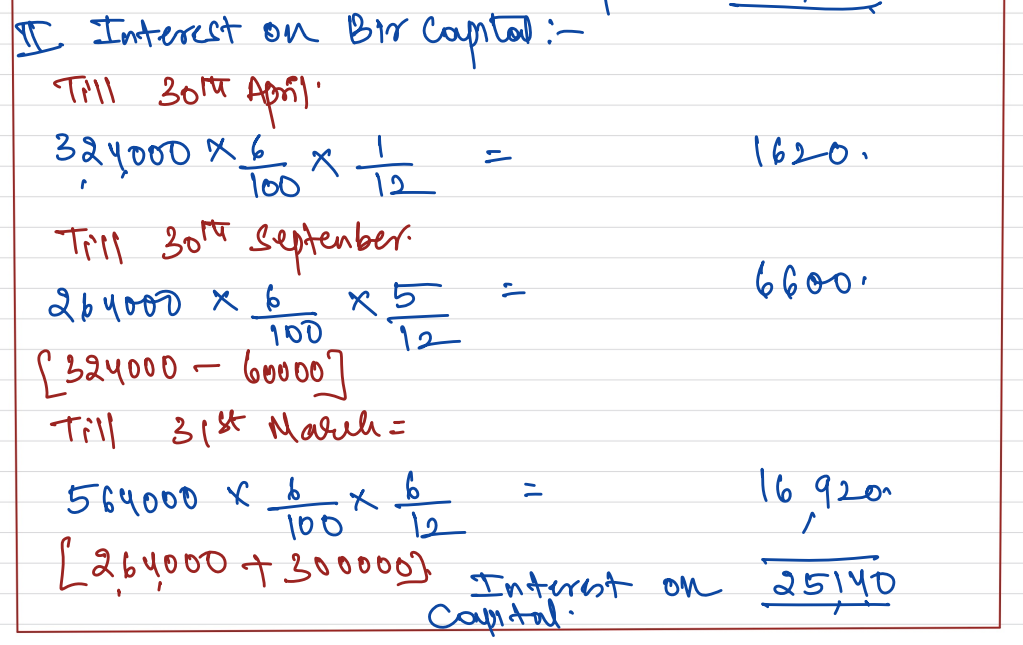 II Interest on Bir Capital :-
Till 30th April.
324000 × 6/100 × 1/12 = 1620.
Till 30th September.
264000 × 6/100 × 5/12 = 6600.
[324000 - 60000]
Till 31st March =
564000 × 6/100 × 6/12 = 16,920.
[264000 + 300000]
Interest on Capital. 25,140